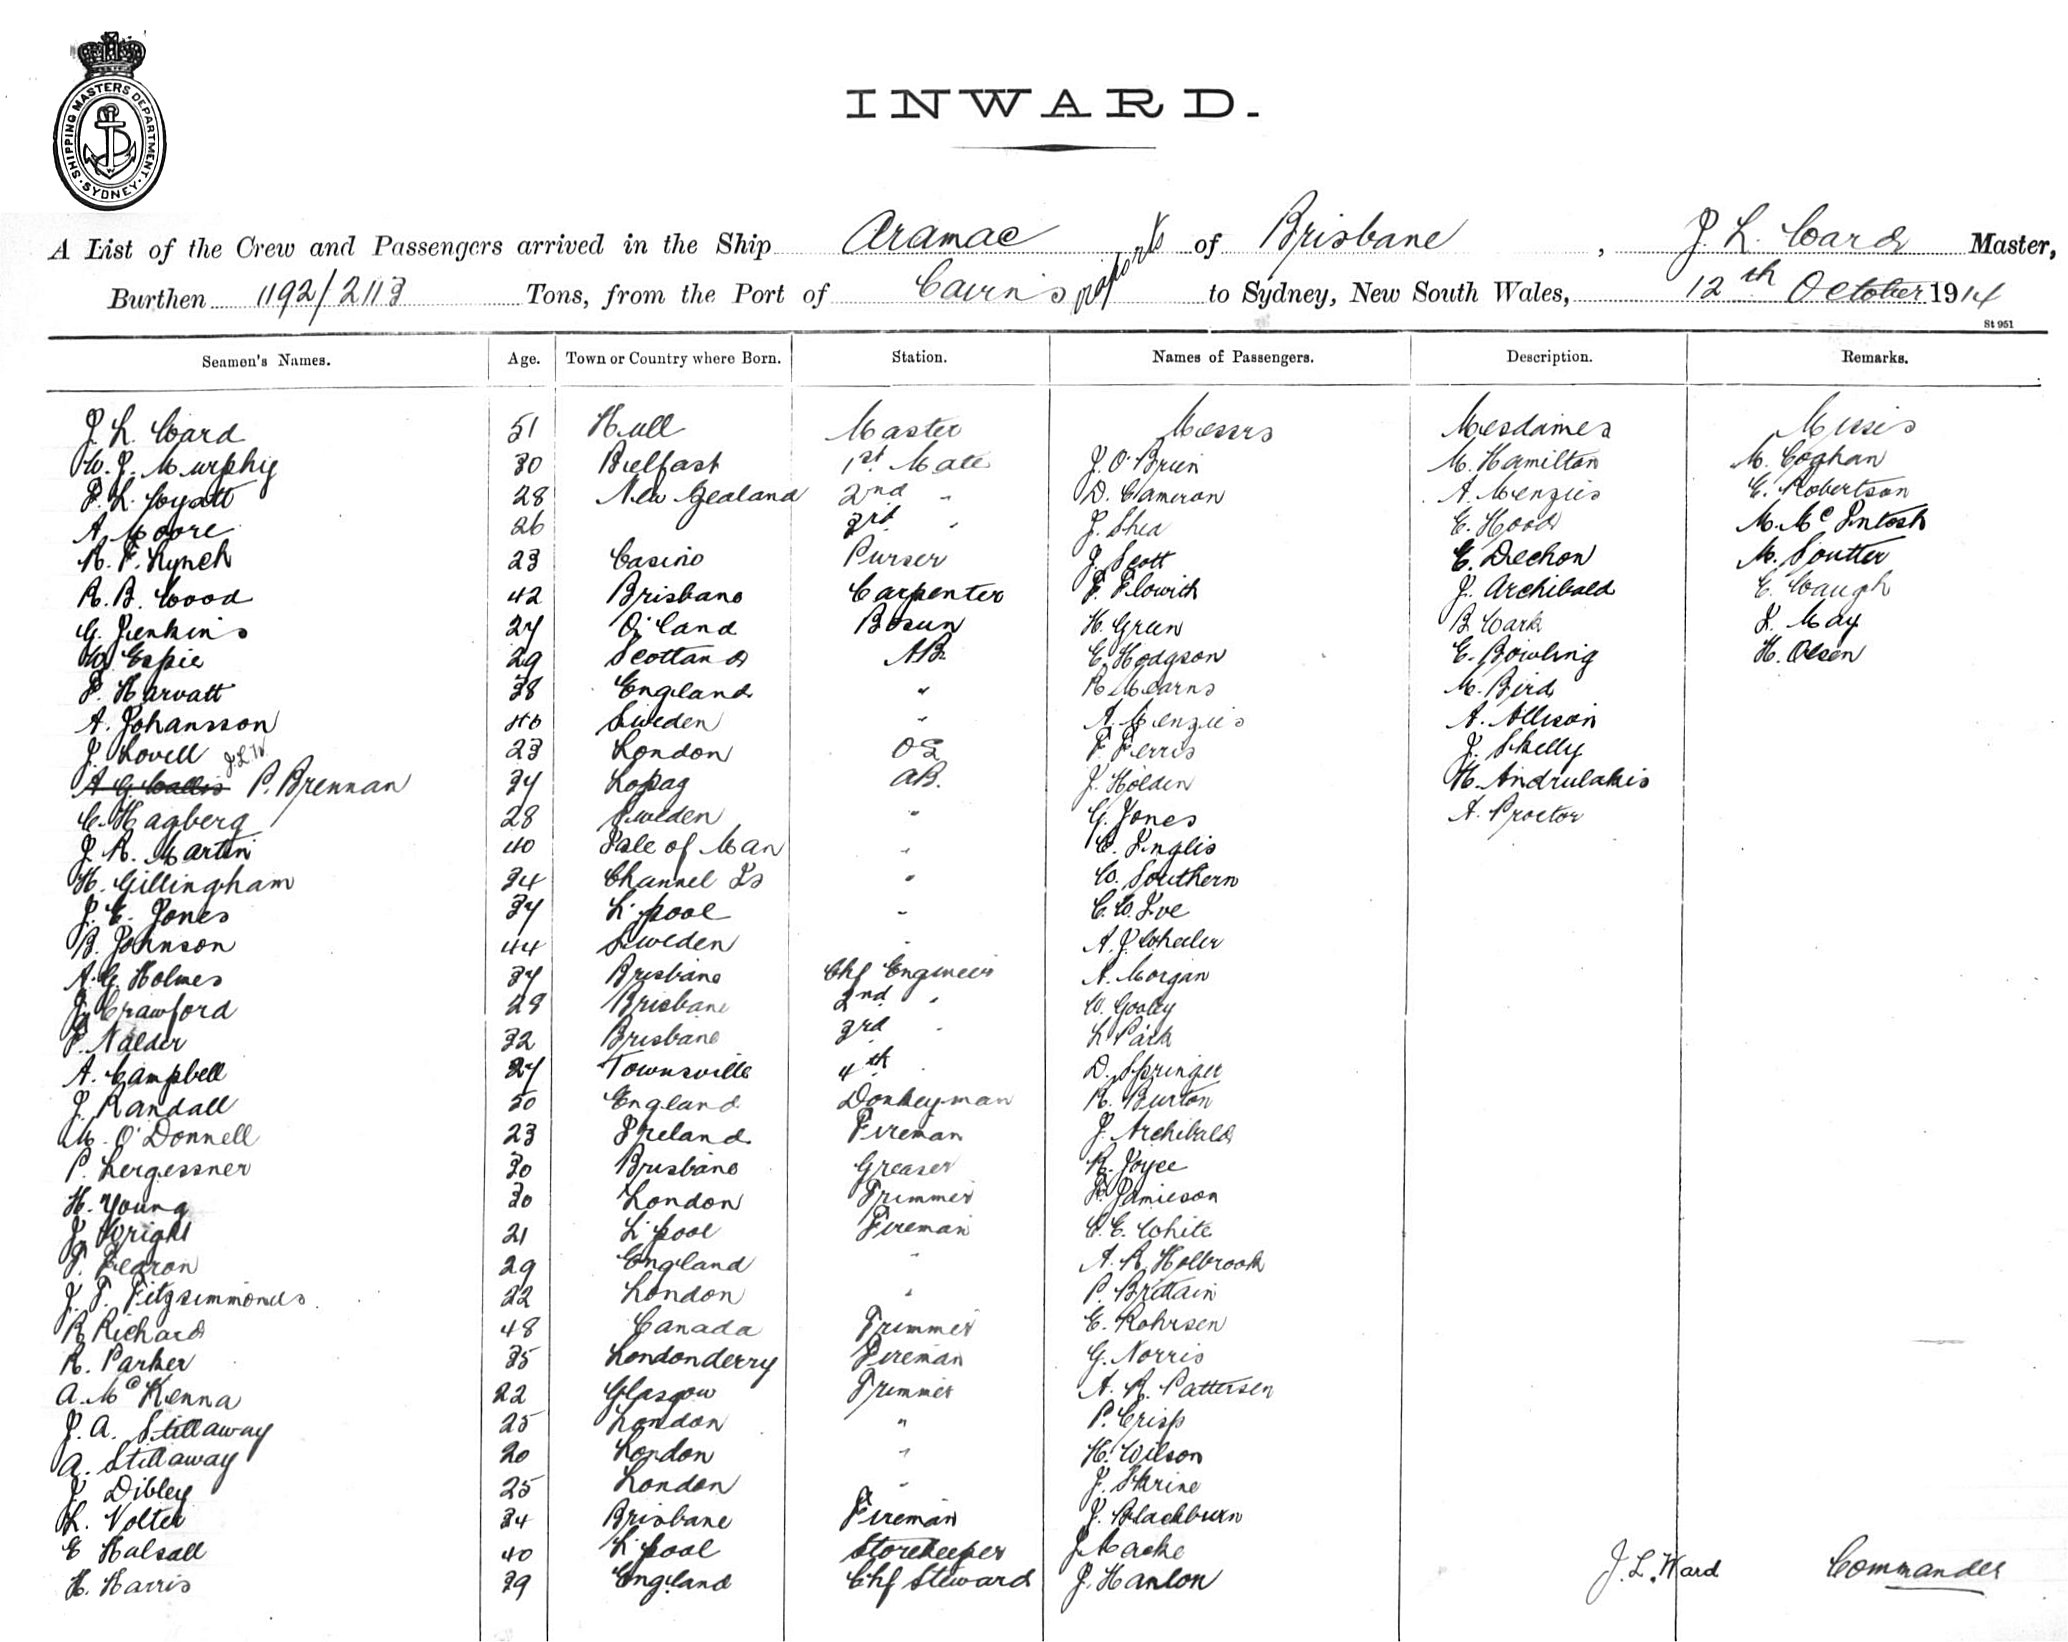 SHIPPING MASTERS DEPARTMENT SYDNEY
INWARD.
A List of the Crew and Passengers arrived in the Ship Aramac of Brisbane, J. L. Ward Master,
Burthen 1192/2113 Tons, from the Port of Cairns & ports to Sydney, New South Wales, 12th October 1914
St 951
Seamen's Names. Age. Town or Country where Born. Station. Names of Passengers. Description. Remarks.
J. L. Ward 51 Hull Master Messrs Mesdames Misses
W. J. Murphy 30 Belfast 1st Mate J. O'Brien M. Hamilton M. Coghan
F. L. Wyatt 28 New Zealand 2nd " D. Cameron A. Menzies E. Robertson
A. Moore 26 3rd " J. Shea E. Hood M. McIntosh
A. F. Lynch 23 Casino Purser J. Scott E. Dechon M. Soutter
R. B. Wood 42 Brisbane Carpenter F. Flowith J. Archibald E. Waugh
G. Jenkins 27 Q'land Bosun H. Green B. Wark L. May
W. Espie 29 Scotland AB. E. Hodgson E. Bowling H. Olsen
F. Harvatt 38 England " R. Mearns M. Bird
A. Johansson 40 Sweden " A. Menzies A. Allison
J. Lovell 23 London OS F. Ferris J. Skelly
A. G. Wallis J.L.W. P. Brennan 37 AB. J. Holden H. Andrulakis
C. Hagberg 28 Sweden " G. Jones A. Proctor
J. R. Martin 40 Isle of Man " C. Inglis
H. Gillingham 34 Channel Is " W. Southern
J. E. Jones 37 L'pool " C. W. Ive
B. Johnson 44 Sweden " A. J. Wheeler
A. G. Holmes 37 Brisbane Chf Engineer A. Morgan
J. Crawford 28 Brisbane 2nd " W. Gooley
F. Nalder 32 Brisbane 3rd " L. Park
A. Campbell 27 Townsville 4th " D. Springer
J. Randall 50 England Donkeyman R. Burton
M. O'Donnell 23 Ireland Fireman J. Archibald
P. Lergessner 30 Brisbane Greaser R. Joyce
H. Young 30 London Trimmer R. Jamieson
J. Wright 21 L'pool Fireman C. E. White
T. Fearon 29 England " A. R. Holbrook
J. T. Fitzsimmonds 22 London " P. Brittain
R Richard 48 Canada Trimmer E. Rohrsen
R. Parker 35 Londonderry Fireman G. Norris
A. McKenna 22 Glasgow Trimmer A. R. Pattersen
J. A. Stillaway 25 London " P. Crisp
A. Stillaway 20 London " H. Wilson
J. Dibley 25 London " J. Skrine
L. Nolter 34 Brisbane Fireman J. Blackburn
E Halsall 40 L'pool Storekeeper J. Macke
H. Harris 39 England Chf Steward J. Hanlon J. L. Ward Commander